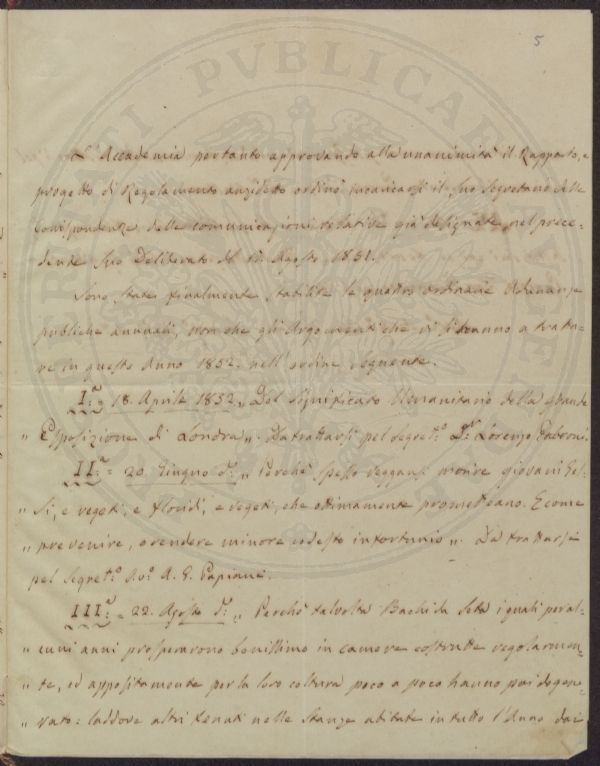 5
L'Accademia pertanto approvando alla unanimità il Rapporto, e
progetto di Regolamento anzidetto ordinò incaricarsi il suo Segretario delle
Corrispondenze delle comunicazioni relative già designate nel prece=
dente suo Deliberato del Agosto 1851.
Sono state finalmente stabilite le quattro ordinarie Adunanze
publiche annuali, non che gli Argomenti che vi si dovranno a tratta=
re in questo Anno 1852. nell'ordine seguente.
I.ª = 18. Aprile 1852. „ Del significato Umanitario della grande
„ Esposizione di Londra „. Da trattarsi pel Segret.º D.r Lorenzo Fabroni.
II.ª = 20. Giugno d.º „ Perchè spesso veggansi morire giovani Gel=
„ si, e vegeti, e floridi, e vegeti, che ottimamente prometteano. E come
„ prevenire, o rendere minore codesto infortunio „. Da trattarsi
pel Segret.º Av.º A. G. Papiani.
III.ª = 22. Agosto d.º „ Perchè talvolta Bachi da Seta i quali per al=
„ cuni anni prosperarono benissimo in camere costrutte regolarmen=
„ te, ed appositamente per la loro coltura poco a poco hanno poi degene=
„ rato: laddove altri tenuti nelle stanze abitate in tutto l'Anno dai